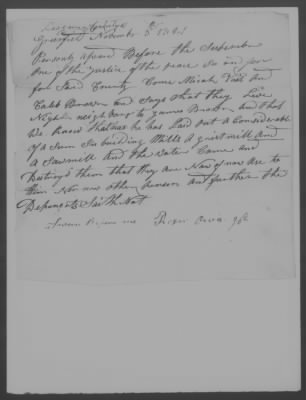 November 5th
Personly apeard Before the Subscriber
One of the Justice of the peace in and for
for Said County Came Micah and
Caleb Brown and Says that they Live
Nigh neighbours to James Brown and that
We know that he has laid out a Considerable
of a Sum in building Mills a gristmill and
a Sawmill And the water Came and
Destroyd them that they are Now of now use to
him Nor now other person and further the
Deponents Saith Not
Sworn Before me